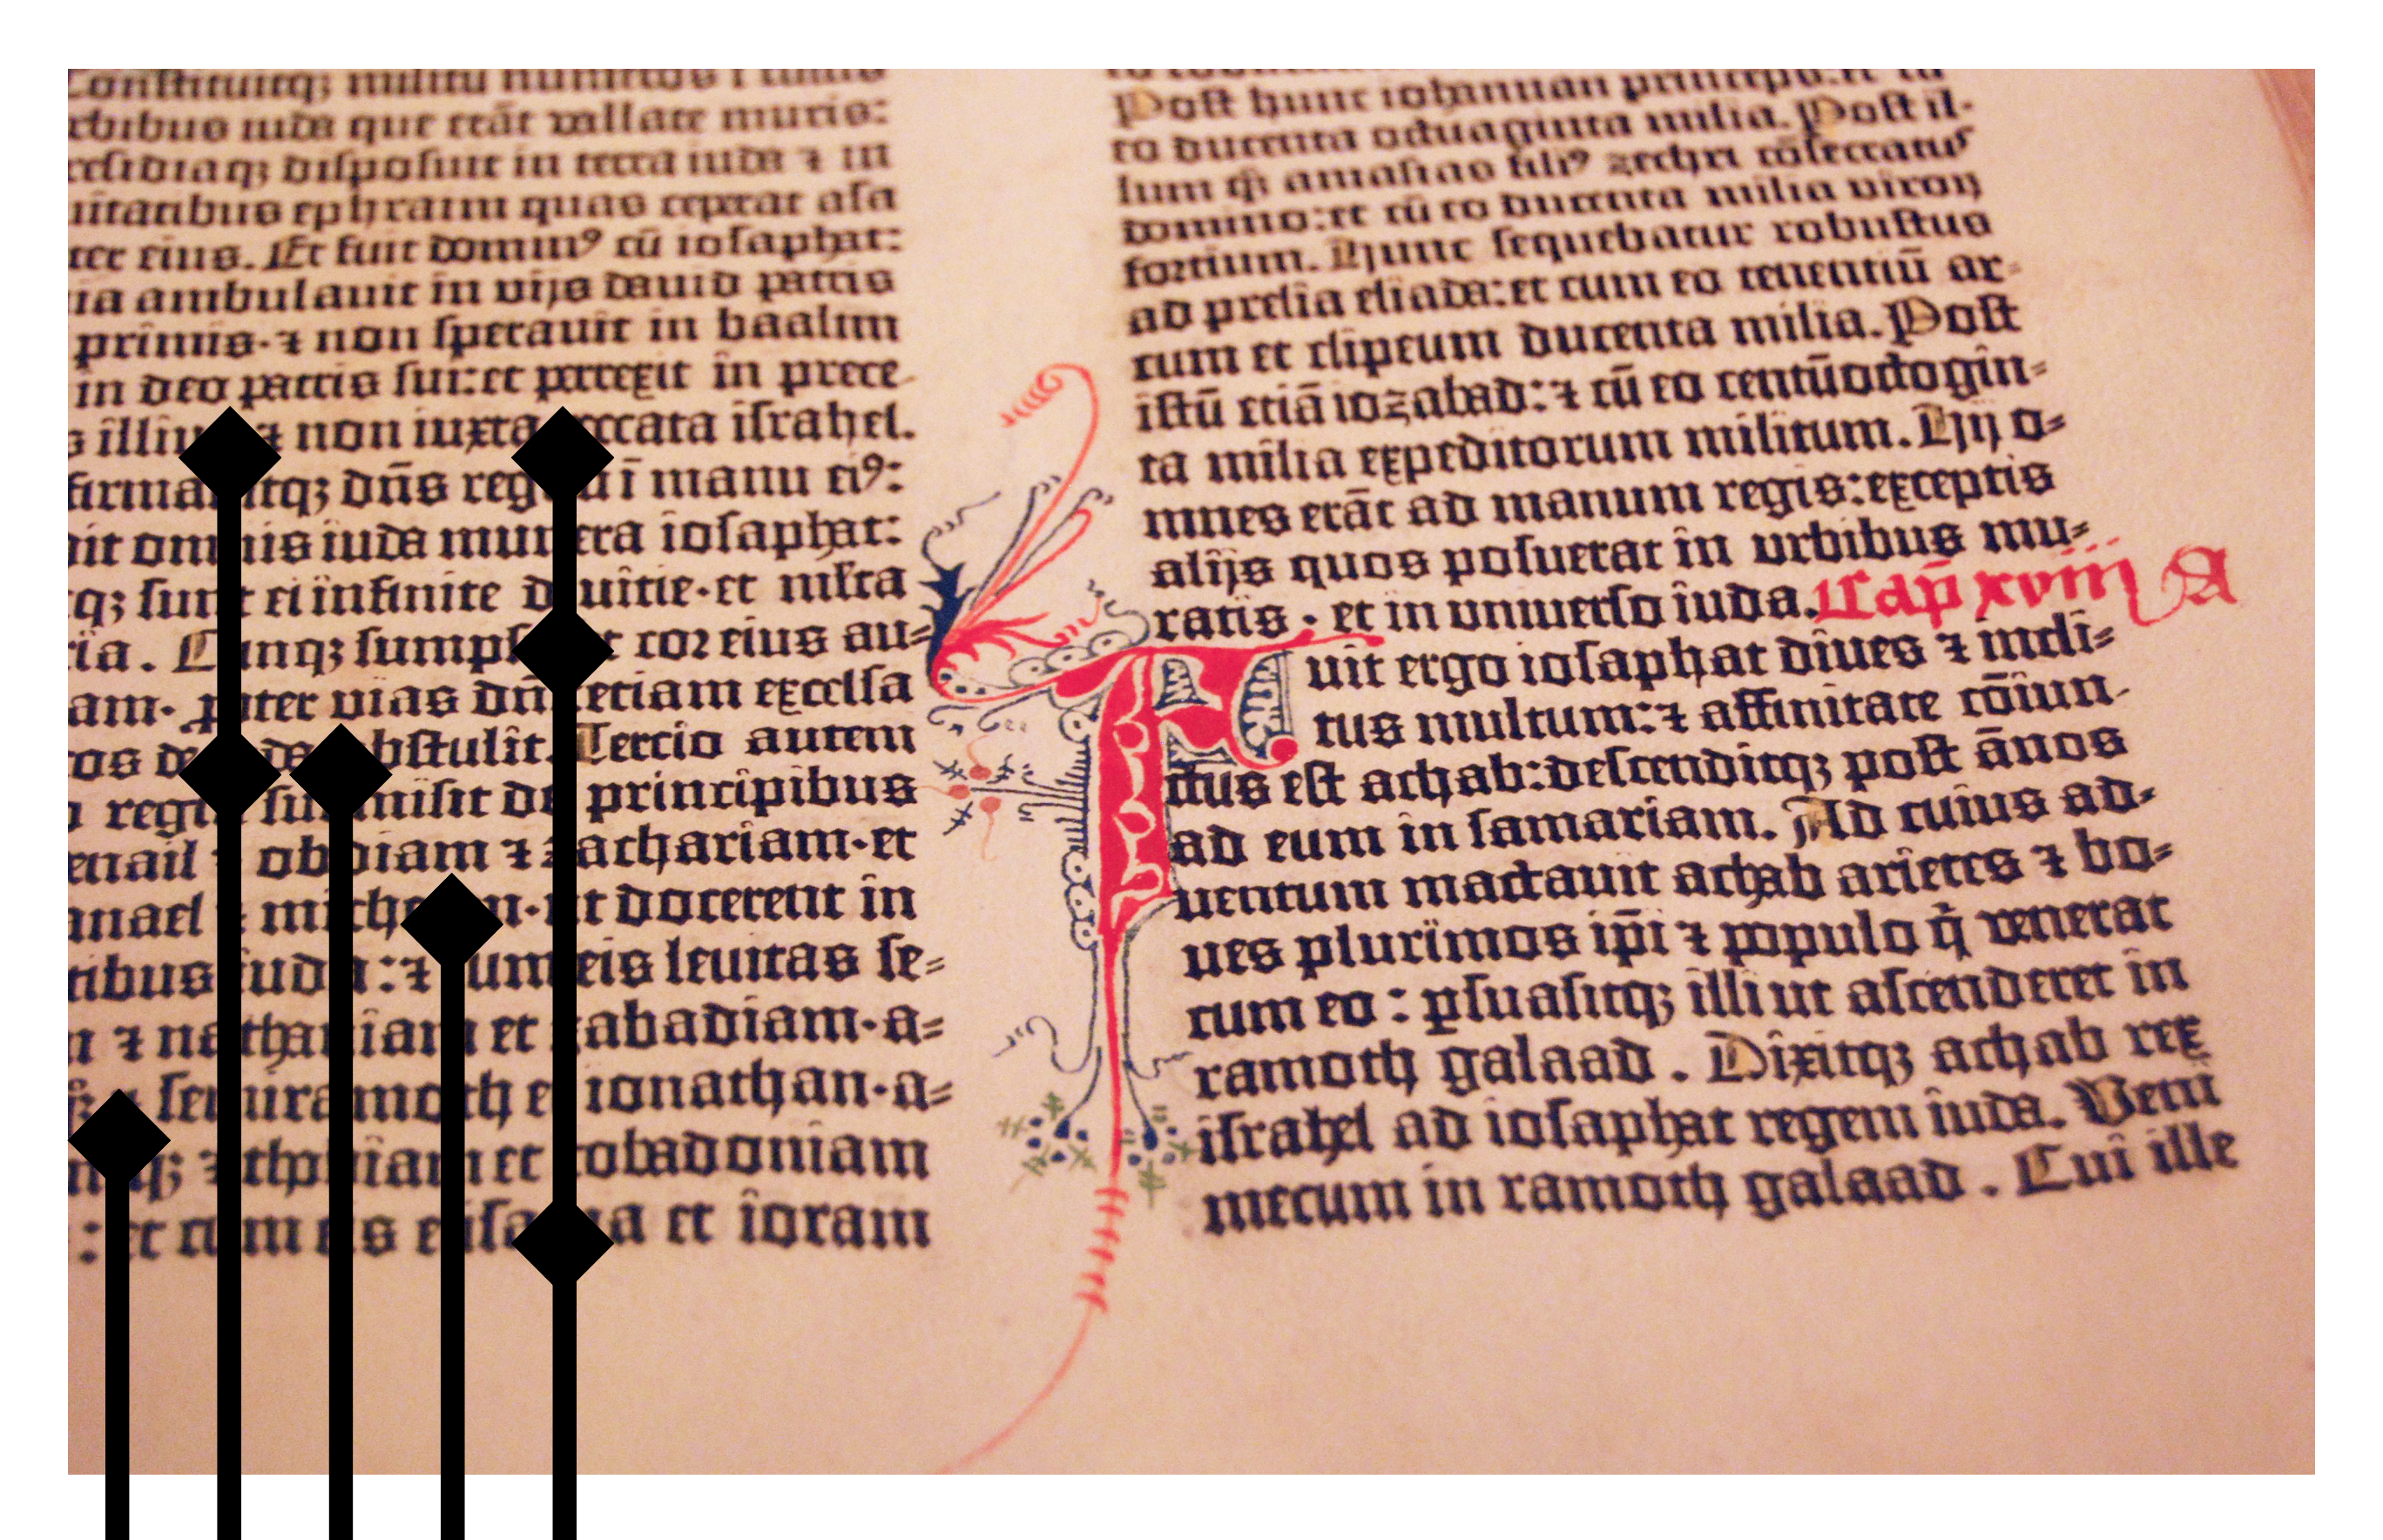 Constituitq; militū numeros ī cunctis
rbibus iuda que erāt vallate muris:
residiaq; disposuit in terra iuda ⁊ in
uitatibus ephraim quas ceperat asa
ter eius. Et fuit dominꝰ cū iosaphat:
ia ambulauit in vijs dauid patris
primis·⁊ non sperauit in baalim
in deo patris sui:et perrexit in prece
illiuꝰ ⁊ non iuxta peccata israhel.
firmauitq; dn̄s regnū ī manu eiꝰ:
it omnis iuda munera iosaphat:
q; sunt ei infinite diuitie·et ml̄ta
ria. Cunq; sumpsisset cor eius au⸗
am· ꝓpter vias dn̄i etiam excelsa
os de iuda abstulit. Tercio autem
regni sui misit de principibus
enail ⁊ obdiam ⁊ zachariam·et
anael ⁊ micheam·ut docerent in
tibus iuda:⁊ cum eis leuitas se⸗
n ⁊ nathaniam et zabadiam·a⸗
⁊ semiramoth et ionathan·a⸗
⁊ thobiam et tobadoniam
: et cum eis elisama et ioram
Post hunc iohannan princeps:et cū
eo ducenta octuaginta milia. Post il⸗
lum q̄ȝ amasias filiꝰ zechri cōsecratus
domino:et cū eo ducenta milia viroꝝ
fortium. Hunc sequebatur robustus
ad prelia eliada:et cum eo tenentiū ar⸗
cum et clipeum ducenta milia. Post
istū etiā iozabad:⁊ cū eo centūoctogin⸗
ta milia expeditorum militum. Hij o⸗
mnes erāt ad manum regis:exceptis
alijs quos posuerat in vrbibus mu⸗
ratis · et in vniuerso iuda. Cap̄ xviii A
Fuit ergo iosaphat diues ⁊ incli⸗
tus multum:⁊ affinitate cōiun⸗
ctus est achab:descenditq; post ānos
ad eum in samariam. Ad cuius ad⸗
uentum mactauit achab arietes ⁊ bo⸗
ues plurimos ip̄i ⁊ populo q̇ venerat
cum eo : ꝑsuasitq; illi ut ascenderet in
ramoth galaad . Dixitq; achab rex
israhel ad iosaphat regem iuda. Veni
mecum in ramoth galaad . Cui ille